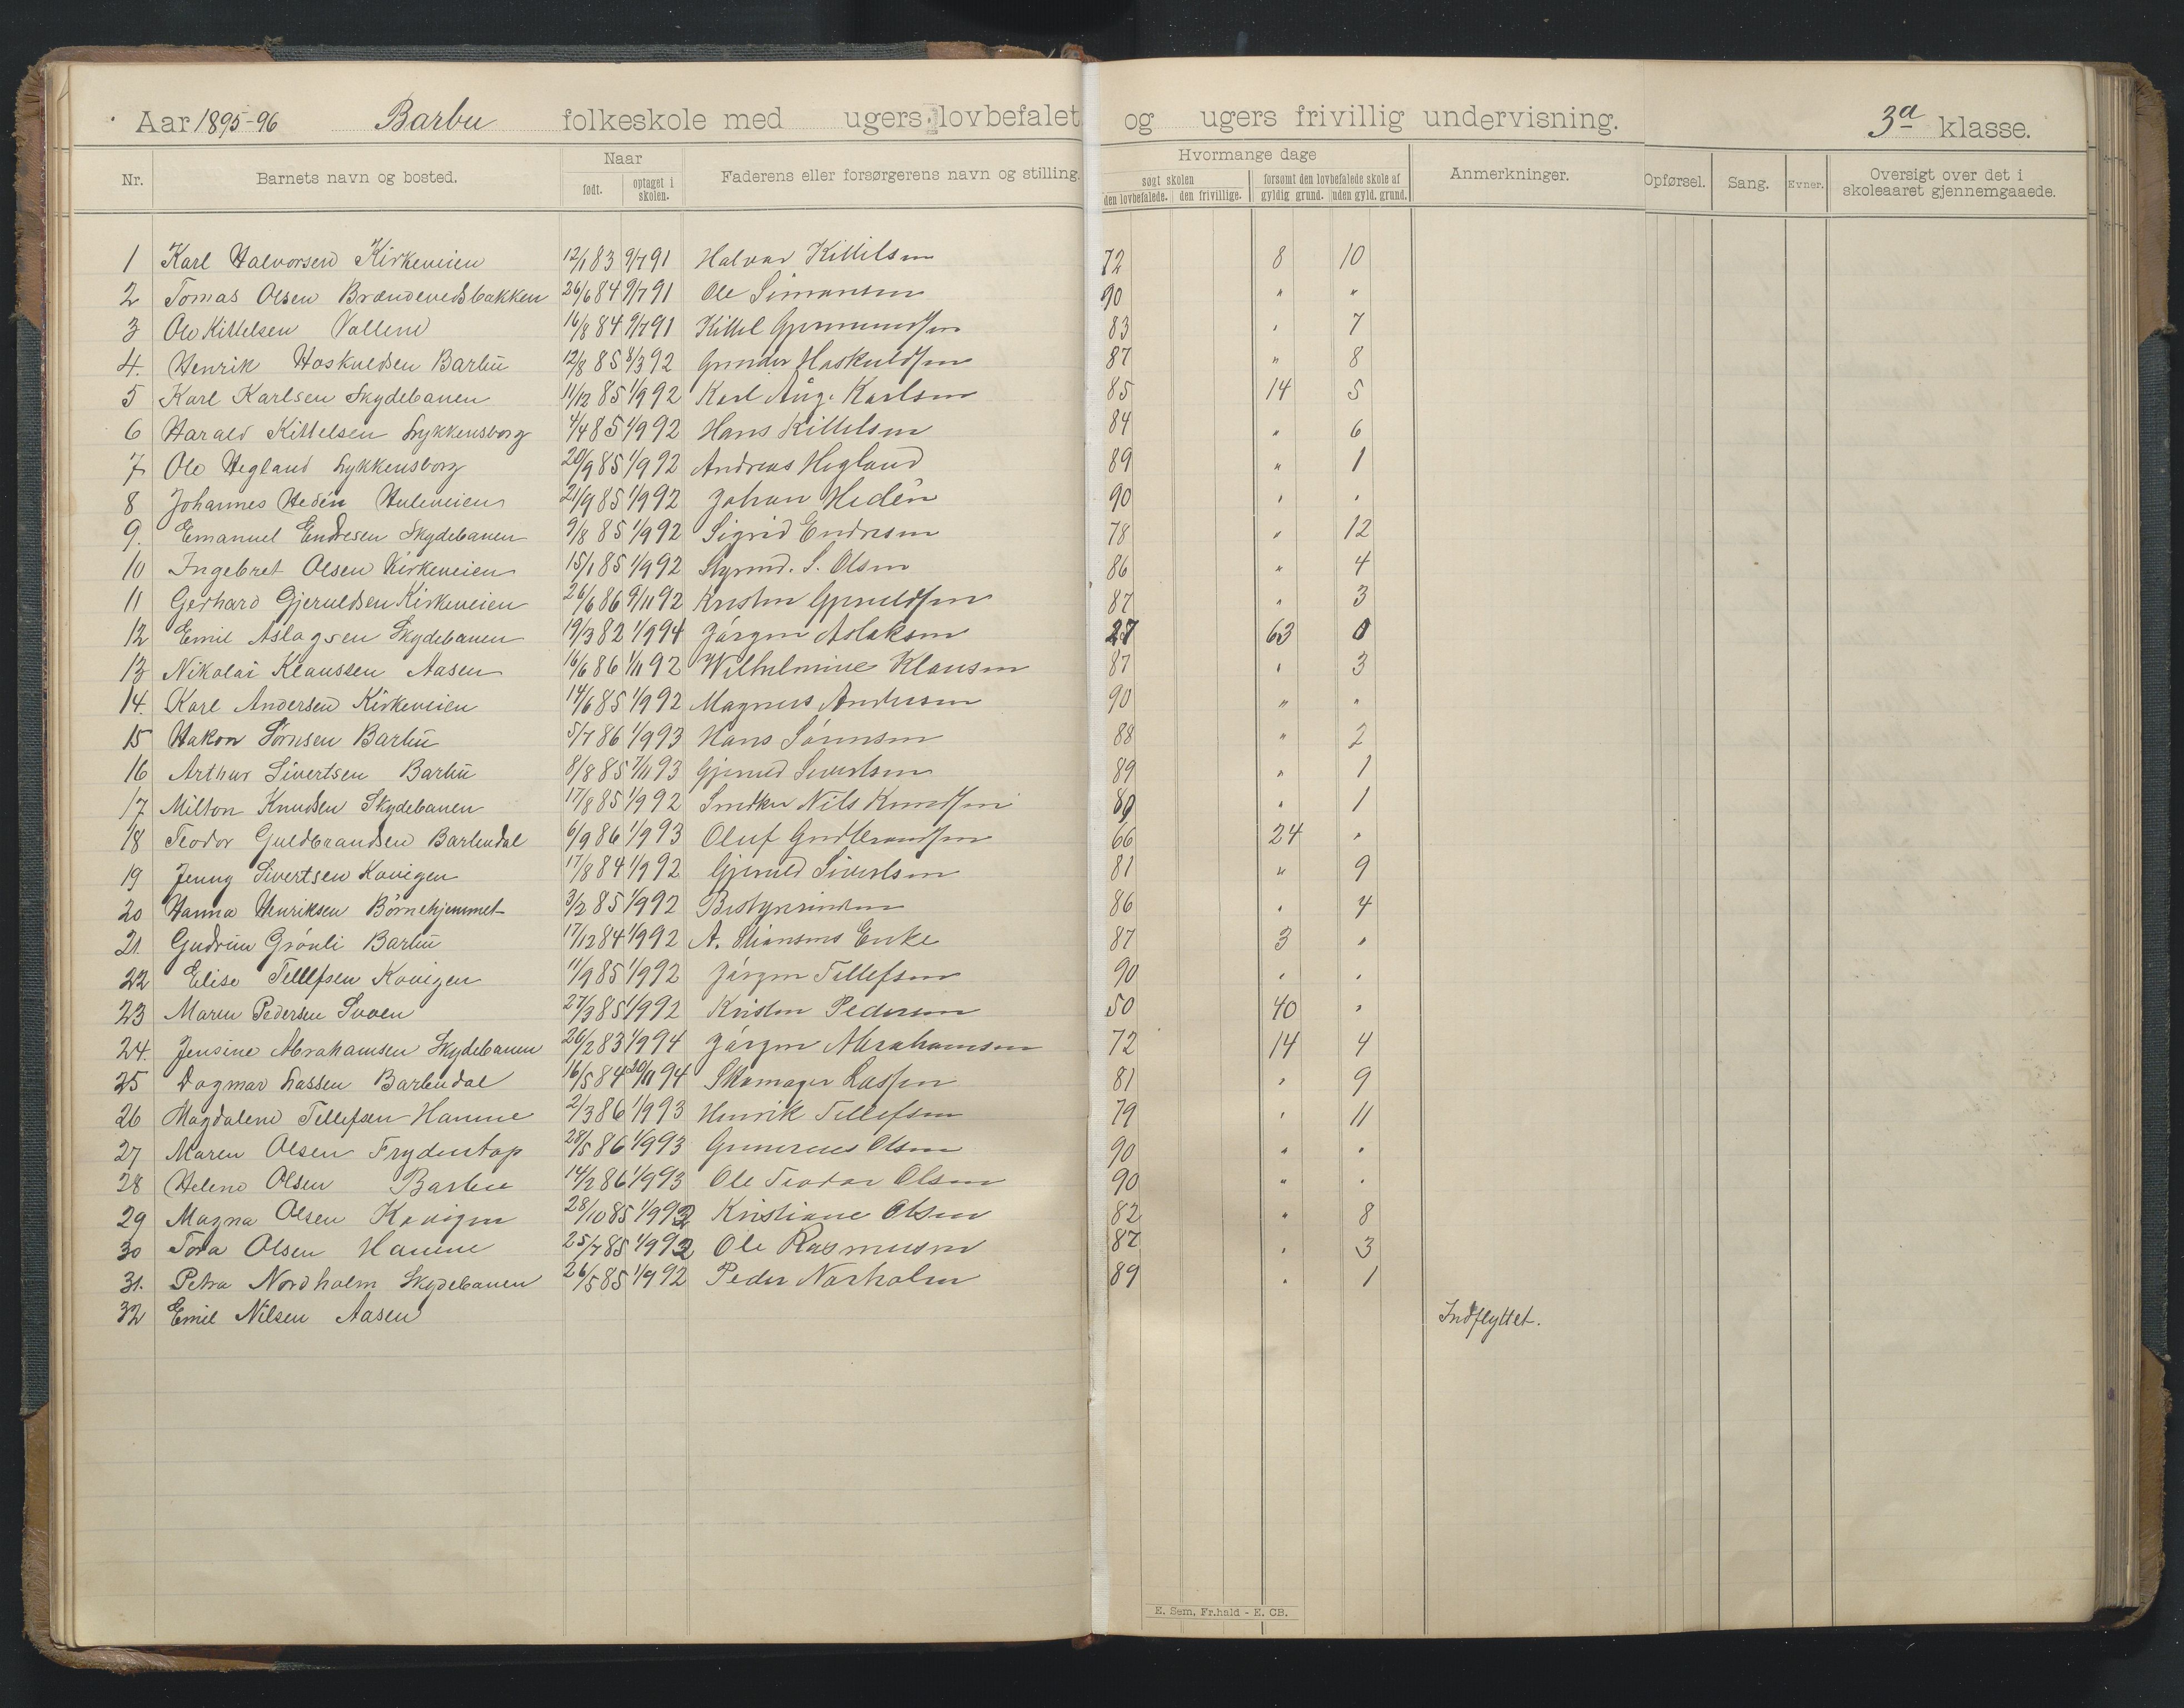 Aar 1895-96 Barbu folkeskole med ugers lovbefalet og ugers frivillig undervisning. 3a klasse.
Nr. Barnets navn og bosted. Naar født. optaget i skolen. Faderens eller forsørgerens navn og stilling. Hvormange dage søgt skolen den lovbefalede. den frivillige. forsømt den lovbefalede skole af gyldig grund. uden gyld. grund. Anmerkninger. Opførsel. Sang. Evner. Oversigt over det i skoleaaret gjennemgaaede.
1 Karl Halvorsen Kirkeveien 12/1 83 9/7 91 Halvor Kittilsen 72 8 10
2 Tomas Olsen Brændevedsbakken 26/6 84 9/7 91 Ole Simonsen 90 " "
3 Ole Kittelsen Vollene 16/8 84 9/7 91 Kittil Gjermundsen 83 " 7
4. Henrik Hoskuldsen Barbu 12/8 85 8/3 92 Gunder Hoskuldsen 87 " 8
5 Karl Karlsen Skydebanen 11/12 85 1/9 92 Karl Aug. Karlsen 85 14 5
6 Harald Kittelsen Lykkensborg 4/4 85 1/9 92 Hans Kittilsen 84 " 6
7 Ole Hegland Lykkensborg 20/9 85 1/9 92 Andreas Hegland 89 " 1
8 Johannes Hedén Huleveien 21/9 85 1/9 92 Johan Hedén 90 " "
9. Emanuel Endresen Skydebanen 9/8 85 1/9 92 Sigrid Endresen 78 " 12
10 Ingebret Olsen Kirkeveien 15/1 85 1/9 92 Styrmd. S. Olsen 86 " 4
11 Gerhard Gjeruldsen Kirkeveien 26/6 86 9/11 92 Kristen Gjeruldsen 87 " 3
12 Emil Aslagsen Skydebanen 19/3 82 1/9 94 Jörgen Aslaksen 27 63 0
13 Nikolai Klaussen Aasen 16/6 86 1/11 92 Wilhelmine Klausen 87 " 3
14. Karl Andersen Kirkeveien 14/6 85 1/9 92 Magnus Andersen 90 " "
15 Hakon Sörnsen Barbu 5/7 86 1/9 93 Hans Sörensen 88 " 2
16 Arthur Sivertsen Barbu 8/8 85 7/11 93 Gjeruld Sivertsen 89 " 1
17 Milton Knudsen Skydebanen 17/8 85 1/9 92 Snedker Nils Knudsen 89 " 1
18 Teodor Guldbrandsen Barbudal 6/9 86 1/9 93 Oluf Gudbrandsen 66 24 "
19 Jenny Sivertsen Kovigen 17/8 84 1/9 92 Gjeruld Sivertsen 81 " 9
20 Hanna Henriksen Börnehjemmet 3/2 85 1/9 92 Bestyrerinden 86 " 4
21. Gudrun Grönli Barbu 17/12 84 1/9 92 A. Stiansens Enke 87 3 "
22 Elise Tellefsen Kovigen 11/9 85 1/9 92 Jörgen Tellefsen 90 " "
23 Maren Pedersen Svoen 27/3 85 1/9 92 Kristen Pedersen 50 40 "
24. Jensine Abrahamsen Skydebanen 26/2 83 1/9 94 Jörgen Abrahamsen 72 14 4
25 Dagmar Lassen Barbudal 16/5 84 20/11 94 Skomager Lassen 81 " 9
26 Magdalene Tellefsen Hamne 2/3 86 1/9 93 Henrik Tellefsen 79 " 11
27 Maren Olsen Frydentop 28/5 86 1/9 93 Gunerius Olsen 90 " "
28 Helene Olsen Barbu 14/2 86 1/9 93 Ole Teodor Olsen 90 " "
29 Magna Olsen Kovigen 28/10 85 1/9 92 Kristiane Olsen 82 " 8
30 Tora Olsen Hamne 25/7 85 1/9 92 Ole Rasmusen 87 " 3
31. Petra Nordholm Skydebanen 26/5 85 1/9 92 Peder Norholm 89 " 1
32 Emil Nilsen Aasen Indflyttet.
E. Sem, Fr.hald - E. CB.